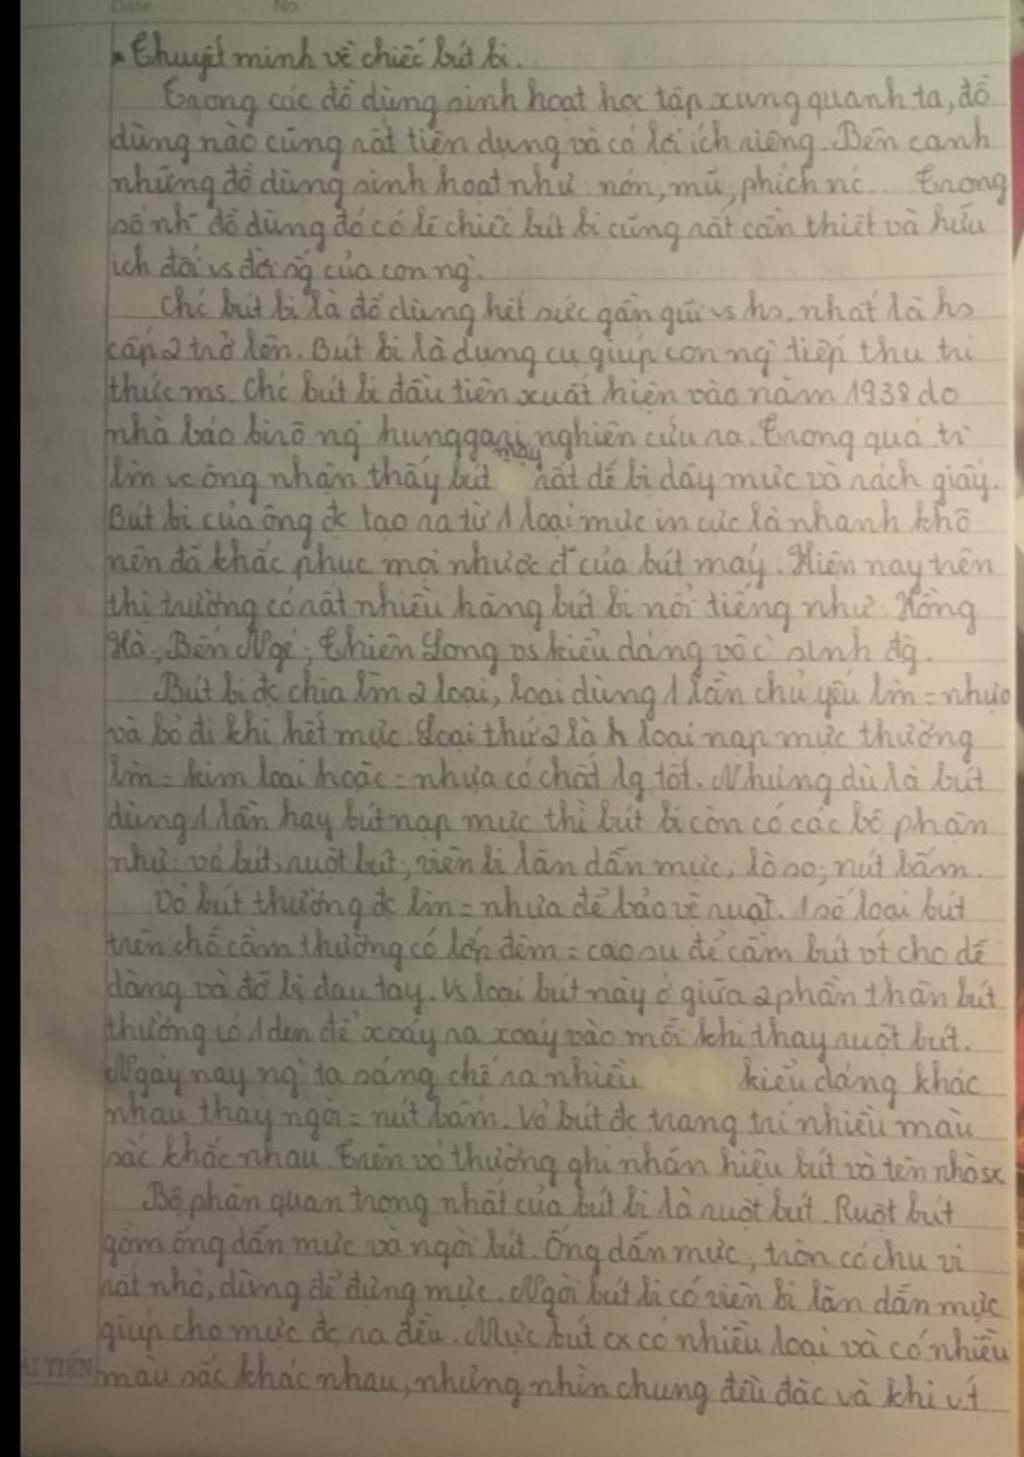 Date No.
* Thuyết minh về chiếc bút bi.
Trong các đồ dùng sinh hoạt học tập xung quanh ta, đồ
dùng nào cũng rất tiện dụng và có lợi ích riêng. Bên cạnh
những đồ dùng sinh hoạt như: nón, mũ, phích nc... Trong
số nh~ đồ dùng đó có lẽ chiếc bút bi cũng rất cần thiết và hữu
ích đối vs đời sống của con ng`.
Chc bút bi là đồ dùng hết sức gần gũi vs hs, nhất là hs
cấp 2 trở lên. Bút bi là dụng cụ giúp con ng` tiếp thu tri
thức ms. Chc bút bi đầu tiên xuất hiện vào năm 1938 do
nhà báo birô ng` hunggari nghiên cứu ra. Trong quá tr`
lm vc ông nhận thấy bút máy rất dễ bị dây mực và rách giấy.
Bút bi của ông đc tạo ra từ 1 loại mực in cực là nhanh khô
nên đã khắc phục mọi nhược đ' của bút máy. Hiện nay trên
thị trường có rất nhiều hãng bút bi nổi tiếng như: Hồng
Hà, Bến Nghé, Thiên Long vs kiểu dáng vô c` sinh độg.
Bút bi đc chia lm 2 loại, loại dùng 1 lần chủ yếu lm = nhựa
và bỏ đi khi hết mực. Loại thứ 2 là loại nạp mực thường
lm = kim loại hoặc = nhựa có chất lg tốt. Nhưng dù là bút
dùng 1 lần hay bút nạp mực thì bút bi còn có các bộ phận
như: vỏ bút, ruột bút, viên bi lăn dẫn mực, lò so, nút bấm.
Vỏ bút thường đc lm = nhựa để bảo vệ ruột. 1 số loại bút
trên chỗ cầm thường có lớp đệm = cao su để cầm bút vt cho dễ
dàng và đỡ bị đau tay. Vs loại bút này ở giữa 2 phần thân bút
thường có 1 đen để xoáy ra xoáy vào mỗi khi thay ruột bút.
Ngày nay ng` ta sáng chế ra nhiều kiểu dáng khác
nhau thay ngòi = nút bấm. Vỏ bút đc trang trí nhiều màu
sắc khắc nhau. Trên vỏ thường ghi nhãn hiệu bút và tên nhà sx
Bộ phận quan trọng nhất của bút bi là ruột bút. Ruột bút
gồm ống dẫn mực và ngòi bút. Ống dẫn mực, tròn có chu vi
rất nhỏ, dùng để đựng mực. Ngòi bút bi có viên bi lăn dẫn mực
giúp cho mực đc ra đều. Mực bút cx có nhiều loại và có nhiều
màu sắc khác nhau, nhưng nhìn chung đều đặc và khi vt
ẢI TIẾN